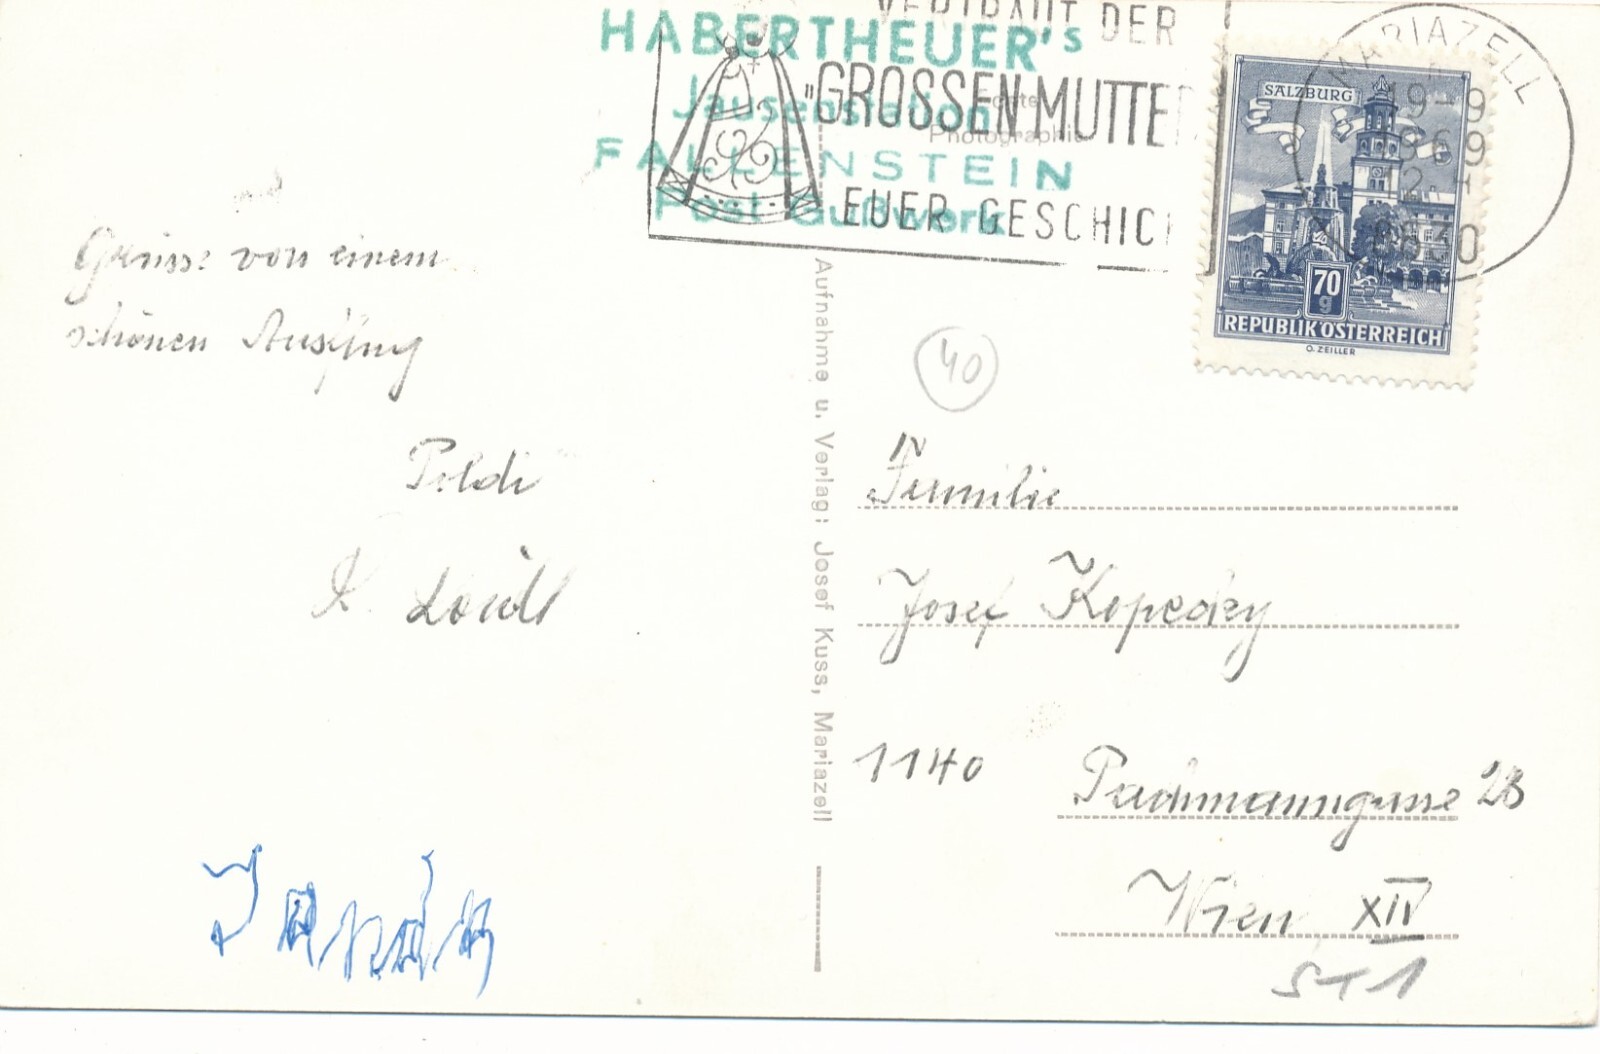 HABERTHEUER's
Jausenstation
FALLENSTEIN
Post Gußwerk
VERTRAUT DER
"GROSSEN MUTTE
EUER GESCHIC
Echte
Photographie
MARIAZELL
19-9
1969
12
8630
SALZBURG
70
g
REPUBLIK ÖSTERREICH
O. ZEILLER
Grüsse von einem
schönen Ausflug
Poldi
40
Aufnahme u. Verlag: Josef Kuss, Mariazell
Familie
Josef Kopecky
1140
Pachmanngasse 28
Wien XIV
ST1